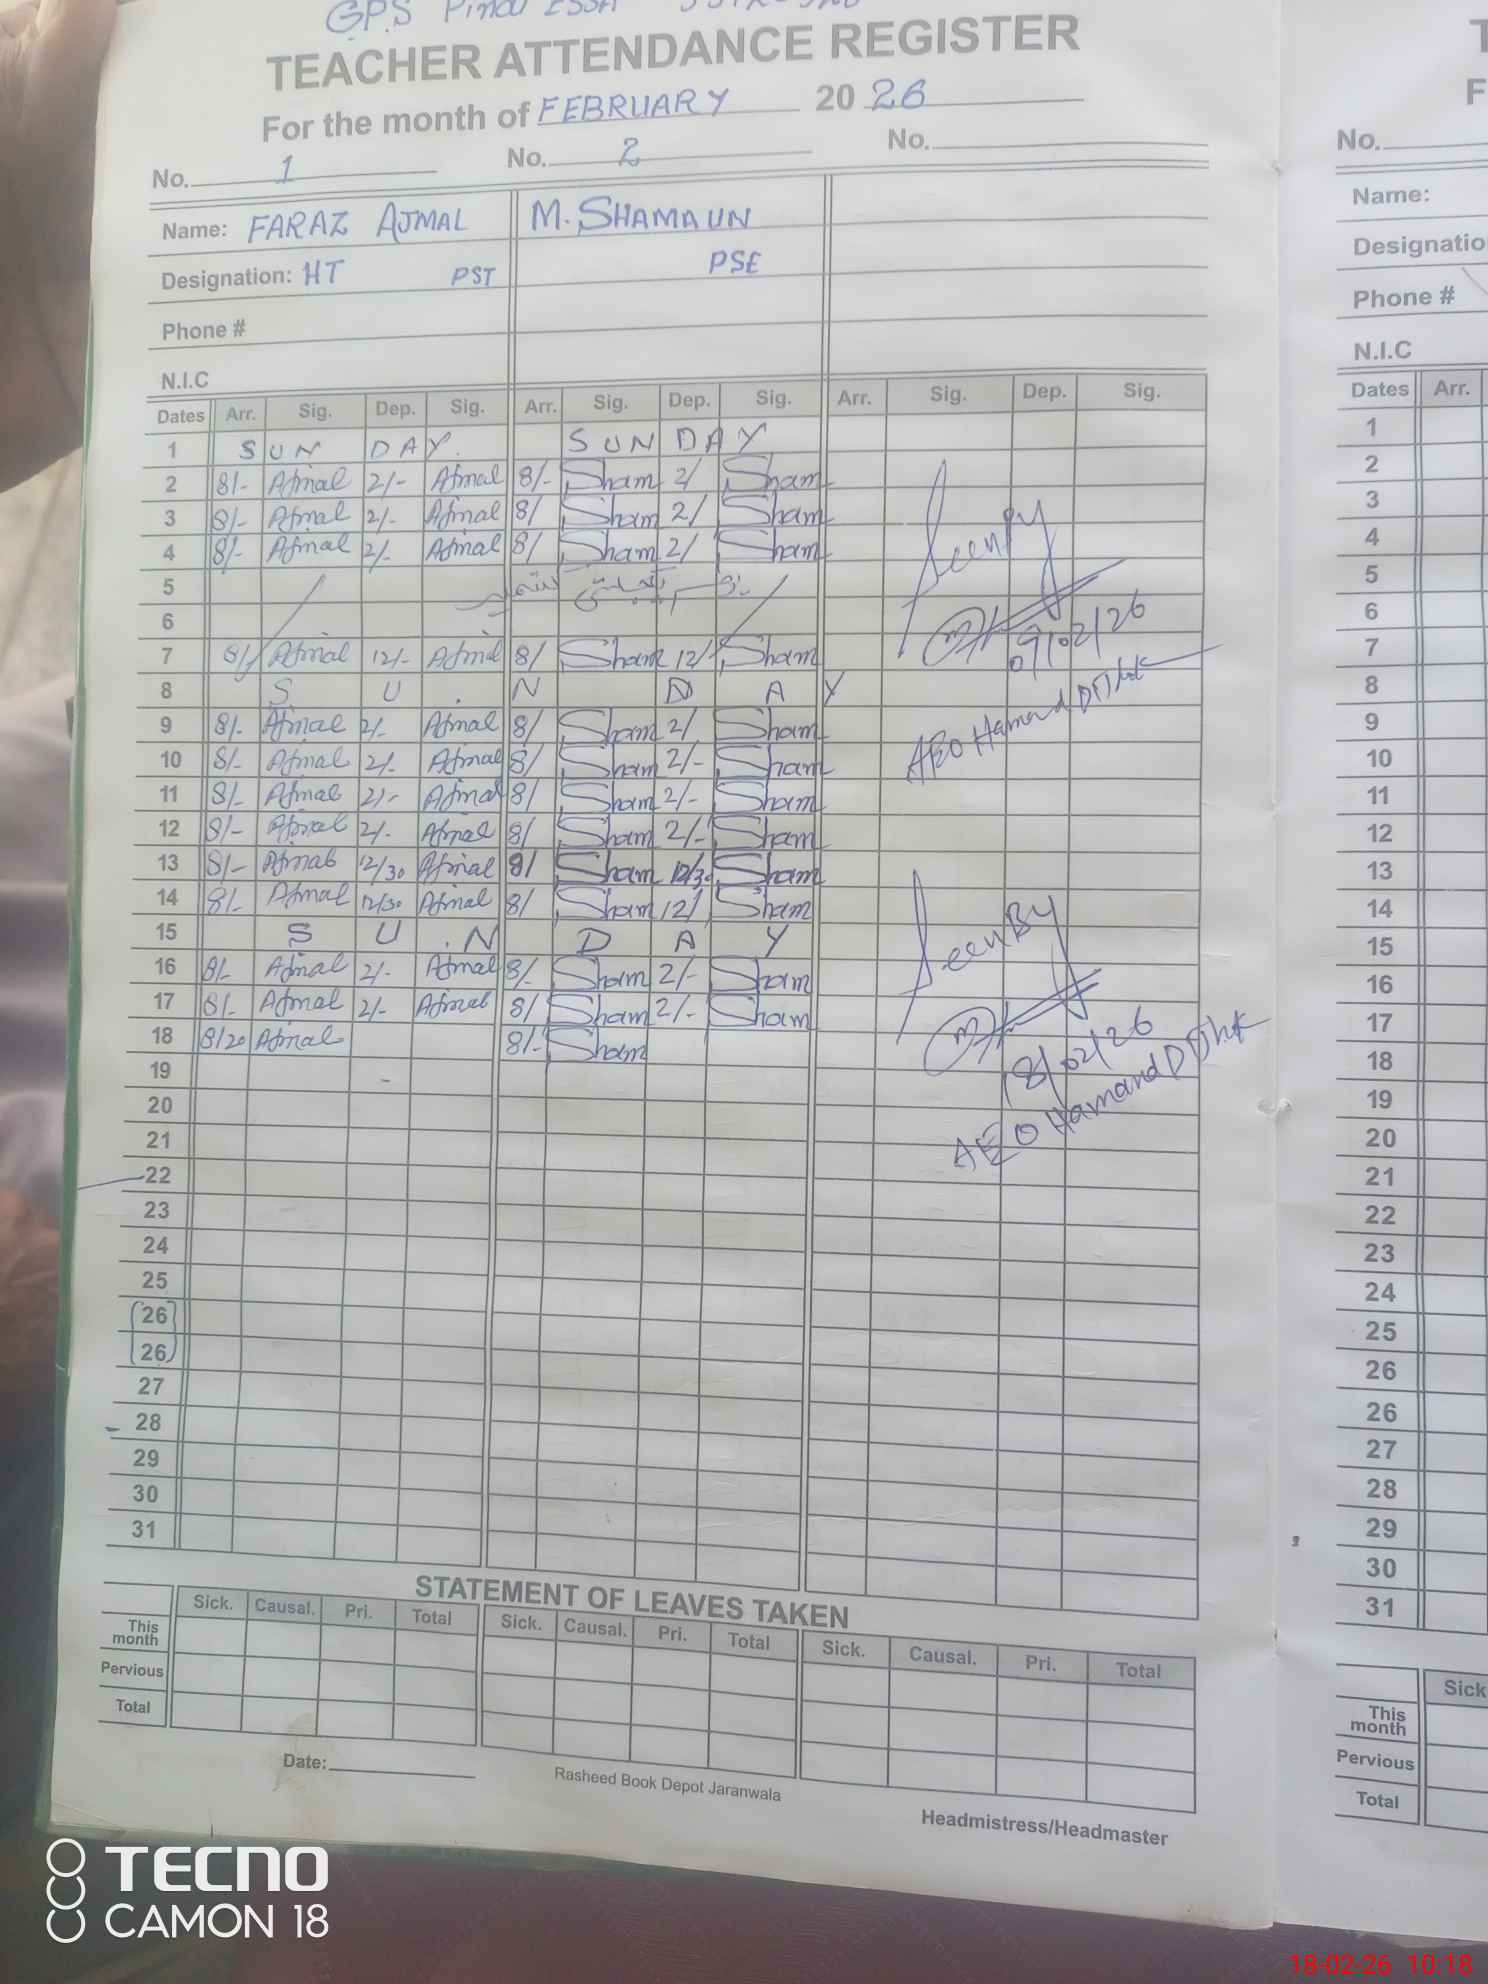 GPS Pind ESSA
TEACHER ATTENDANCE REGISTER
For the month of FEBRUARY 20 26
No. 1 No. 2 No.
Name: FARAZ AJMAL M. SHAMAUN
Designation: HT PST PSE
Phone #
N.I.C
Dates Arr. Sig. Dep. Sig. Arr. Sig. Dep. Sig. Arr. Sig. Dep. Sig.
1 SUN DAY. SUN DAY
2 8/- Ajmal 2/- Ajmal 8/- Sham 2/ Sham
3 8/- Ajmal 2/- Ajmal 8/ Sham 2/ Sham
4 8/- Ajmal 2/- Ajmal 8/ Sham 2/ Sham
5
6
7 8/ Ajmal 12/- Ajmal 8/ Sham 12/ Sham
8 S U . N D A Y
9 8/- Ajmal 2/- Ajmal 8/ Sham 2/ Sham
10 8/- Ajmal 2/- Ajmal 8/ Sham 2/- Sham
11 8/- Ajmal 2/- Ajmal 8/ Sham 2/- Sham
12 8/- Ajmal 2/- Ajmal 8/ Sham 2/- Sham
13 8/- Ajmal 12/30 Ajmal 8/ Sham 12/30 Sham
14 8/- Ajmal 12/30 Ajmal 8/ Sham 12/ Sham
15 S U . N D A Y
16 8/- Ajmal 2/- Ajmal 8/- Sham 2/- Sham
17 8/- Ajmal 2/- Ajmal 8/ Sham 2/- Sham
18 8/20 Ajmal 8/- Sham
19
20
21
22
23
24
25
(26)
(26)
27
28
29
30
31
Seen By
09/02/26
AEO Hamand
Seen By
18/02/26
AEO Hamand
STATEMENT OF LEAVES TAKEN
Sick. Causal. Pri. Total Sick. Causal. Pri. Total Sick. Causal. Pri. Total
This month
Pervious
Total
Date:
Rasheed Book Depot Jaranwala
Headmistress/Headmaster
No.
Name:
Designatio
Phone #
N.I.C
Dates Arr.
1
2
3
4
5
6
7
8
9
10
11
12
13
14
15
16
17
18
19
20
21
22
23
24
25
26
26
27
28
29
30
31
Sick
This month
Pervious
Total
TECNO
CAMON 18
18-02-26 10:18